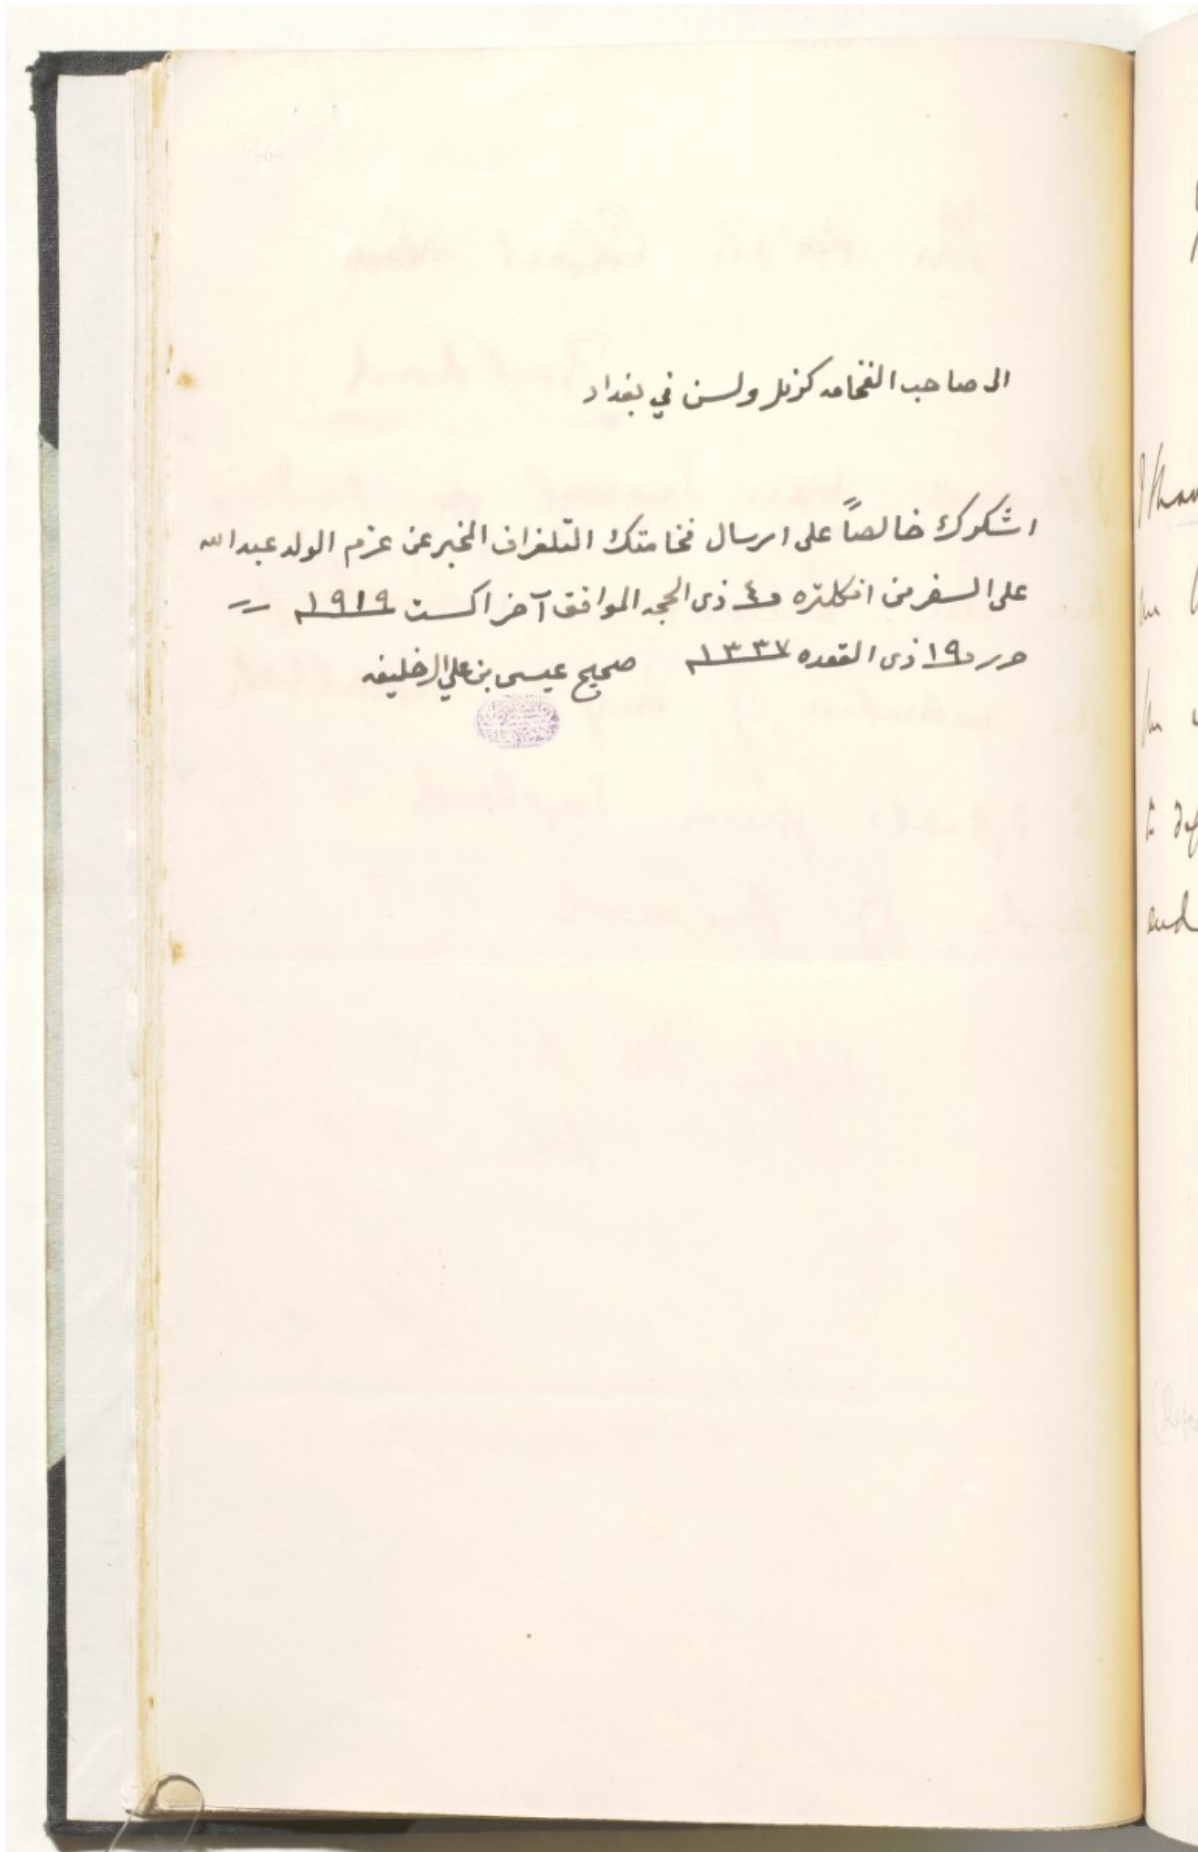 الى صاحب الفخامه كرنل ولسن في بغداد
اشكرك خالصاً على ارسال فخامتك التلغراف المخبر عن عزم الولد عبدالله
على السفر من انكلتره ٤ ذى الحجه الموافق آخر اكست ١٩١٩م
حرر ١٩ ذى القعده ١٣٣٧م صحيح عيسى بن علي ال خليفه
I than
to de
end